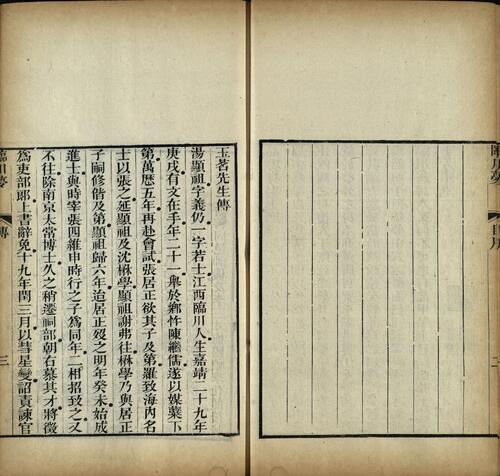 臨川夢 自序 二
玉茗先生傳
湯顯祖字義仍一字若士江西臨川人生嘉靖二十九年
庚戌有文在手年二十一舉於鄉忤陳繼儒遂以媒蘖下
第萬歷五年再赴會試張居正欲其子及第羅致海內名
士以張之延顯祖及沈楙學顯祖謝弗往楙學乃與居正
子嗣修偕及第顯祖歸六年迨居正歿之明年癸未始成
進士與時宰張四維申時行之子爲同年二相招致之又
不往除南京太常博士久之稍遷祠部朝右慕其才將徵
爲吏部郎上書辭免十九年閏三月以彗星變詔責諫官
臨川夢 傳 三